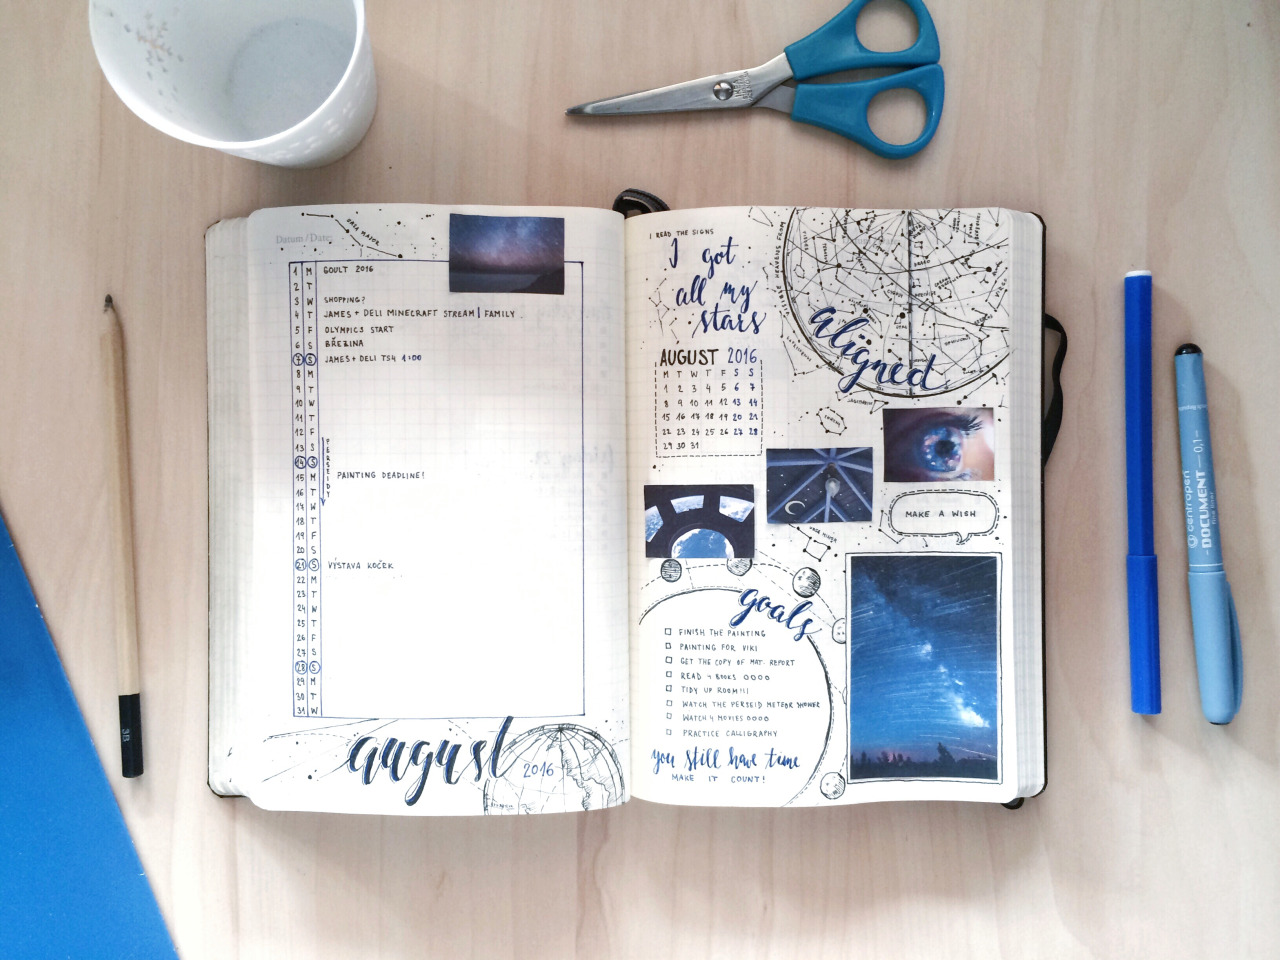 Datum/Date:
URSA MAJOR
1 M GOULT 2016
2 T
3 W SHOPPING?
4 T JAMES + DELI MINECRAFT STREAM | FAMILY
5 F OLYMPICS START
6 S BŘEZINA
7 S JAMES + DELI TS4 1:00
8 M
9 T
10 W
11 T
12 F
13 S PERSEIDY
14 S
15 M PAINTING DEADLINE!
16 T
17 W
18 T
19 F
20 S
21 S VÝSTAVA KOČEK
22 M
23 T
24 W
25 T
26 F
27 S
28 S
29 M
30 T
31 W
august 2016
I READ THE SIGNS
I got
all my
stars
aligned
VISIBLE HEAVENS FROM
AUGUST 2016
M T W T F S S
1 2 3 4 5 6 7
8 9 10 11 12 13 14
15 16 17 18 19 20 21
22 23 24 25 26 27 28
29 30 31
MAKE A WISH
URSA MINOR
goals
FINISH THE PAINTING
PAINTING FOR VIKI
GET THE COPY OF MAT. REPORT
READ 4 BOOKS
TIDY UP ROOM!!!
WATCH THE PERSEID METEOR SHOWER
WATCH 4 MOVIES
PRACTICE CALLIGRAPHY
you still have time
MAKE IT COUNT!
3B
centropen
DOCUMENT 0,1